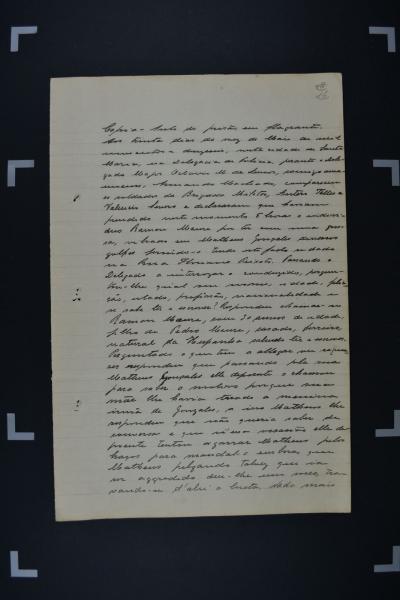 Copia - Auto de prisão em flagrante.
Aos trinta dias do mez de Maio de mil
novecentos e dezeseis, nesta cidade de Santa
Maria, na Delegacia de Policia, perante o Dele-
gado Major Octavio M. de Lemos, comigo ama-
nuense, Armando Machado, compareceu
os soldados da Brigada Militar, Antero Telles e
e declararam que haviam
prendido neste momento 8 horas o indivi-
duo Ramon Maura por ter em uma
sa, vibrado em Matheus Gonçales diversos
golpes tendo isto facto se dado
na Rua Floriano Peixoto. Passando o
Delegado a interrogar o conduzido, pergun-
tou-lhe qual seu nome, idade, filia-
ção, estado, profissão, nacionalidade e
se sabe ler e escrever? Respondeu chamar-se
Ramon Maura, com 30 annos de idade,
filho de Pedro Maura, casado, ferreiro
natural da Hespanha sabendo ler e escrever.
Perguntado o que tem a allegar em
respondeu que passando pela rua
Matheus Gonçales elle depoente o chamou
para saber o motivo porque sua
mãe lhe havia tirado a menina
irmã de Gonçales, a isso Matheus lhe
respondeu que não queria saber de
conversa e que n'essa occasião elle de-
poente tentou agarrar Matheus pelos
braços para mandal-o embora, que
Matheus julgando talvez que ia
ser aggredido deu-lhe um socco, tra-
vando-se d'ahi a lucta, dado mais